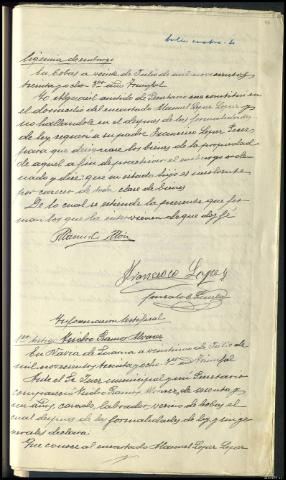 Diligencia de embargo
En Bobas a veinte de Julio de mil novecientos
treinta y ocho. II año Triunfal
Yo Alguacil asistido de Secretario me constituí en
el domicilio del encartado Manuel Lopez Lopez y
no hallandole en el despues de las formalidades
de ley requerí a su padre Francisco Lopez
para que designase los bienes de la propiedad
de aquel a fin de practicar el embargo orde
nado y dice: que su citado hijo es insolvente
por carecer de toda clase de bienes
De lo cual se extiende la presente que fir
man los que la intervienen de que doy fé
Manuel
Francisco Lopez
Gonzalo
Informacion testifical
1er testigo Ramo Alvarez
En a veintiuno de Julio de
mil novecientos treinta y ocho Triunfal
Ante el Sr Juez municipal y mi Secretario
comparecio Ramo Alvarez, de sesenta y
un años, casado, labrador, vecino de Bobas el
cual despues de las formalidades de ley y en ge
nerales declara:
Que conoce al encartado Manuel Lopez Lopez